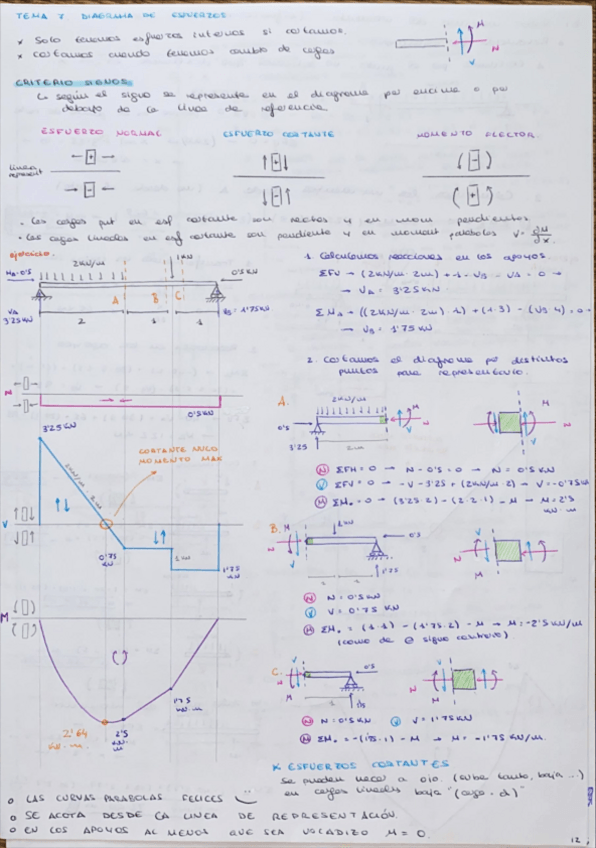 TEMA 7 DIAGRAMA DE ESFUERZOS
* Solo tenemos esfuerzos internos si cortamos.
* cortamos cuando tenemos cambio de cargas
M
N
V
CRITERIO SIGNOS
↳ según el signo se representa en el diagrama por encima o por
debajo de la línea de referencia
ESFUERZO NORMAL ESFUERZO CORTANTE MOMENTO FLECTOR
← + → ↑ + ↓ ( - )
línea
represent
→ - ← ↓ - ↑ ( + )
· Las cargas punt en esf cortante son rectas y en mom pendientes
· Las cargas lineales en esf cortante son pendiente y en moment parábolas V = dM/dx
ejercicio.
2kN/m
1kN
HA=0'5
0'5 KN
A B C
VA
3'25 KN
2 1 1
VB = 1'75KN
1. Calculamos reacciones en los apoyos.
ΣFV → (2KN/m · 2m) + 1 - VB - VA = 0 →
→ VA = 3'25 KN
Σ MA → ((2KN/m · 2m) · 1) + (1·3) - (VB·4) = 0
→ VB = 1'75 KN
2. Cortamos el diagrama por distintos
puntos para representarlo.
N
0'5KN
3'25KN
2KN/m · 2m
CORTANTE NULO
MOMENTO MAX
V
0'75
KN
1'75
KN
M
2'64
KN·m
2'5
KN·m
1'75
KN·m
A.
2KN/m
0'5
3'25
2m
M
N
V
N ΣFH = 0 → N - 0'5 = 0 → N = 0'5 KN
V ΣFV = 0 → -V - 3'25 + (2KN/m · 2) → V = -0'75K
M ΣM. = 0 → (3'25·2) - (2·2·1) - M → M = 2'5
KN·m
B.
M
1KN
0'5
N
V
1'75
N N = 0'5KN
V V = 0'75 KN
M ΣM. = (1·1) - (1'75·2) - M → M = -2'5KN/m
(como de ⊖ signo contrario)
C.
M
0'5
N
V
N N = 0'5KN V V = 1'75KN
M ΣM. = -(1'75·1) - M → M = -1'75 KN/m.
* ESFUERZOS CORTANTES
Se pueden hacer a ojo. (sube tanto, baja ...)
en cargas lineales baja "(carga · d)"
o LAS CURVAS PARABOLAS FELICES
o SE ACOTA DESDE LA LINEA DE REPRESENTACIÓN.
o EN LOS APOYOS AL MENOS QUE SEA VOLADIZO M = 0.
12